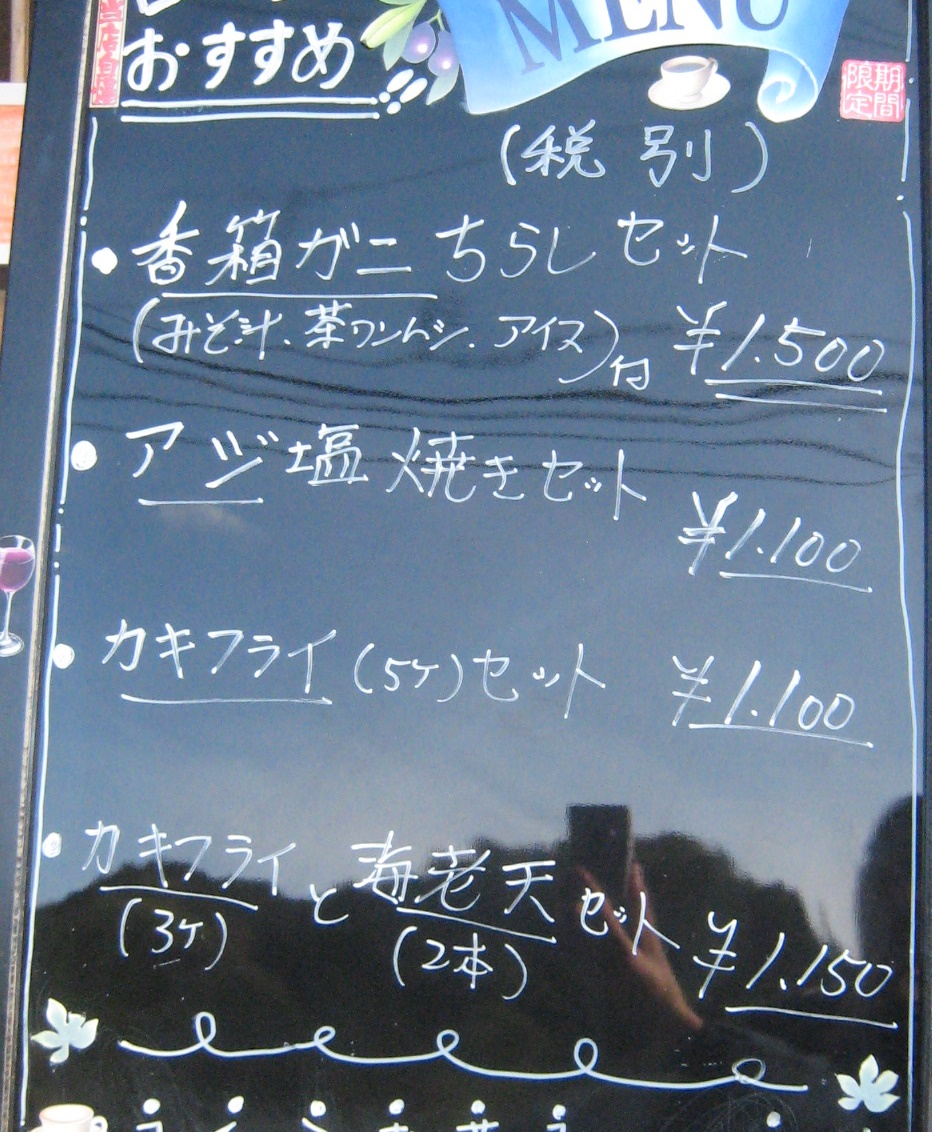 おすすめ!!
MENU
期間限定
(税別)
・香箱ガニちらしセット
(みそ汁、茶ワンムシ、アイス)付 ¥1.500
・アジ塩焼きセット
¥1.100
・カキフライ(5ケ)セット ¥1.100
・カキフライと海老天セット ¥1.150
(3ケ) (2本)